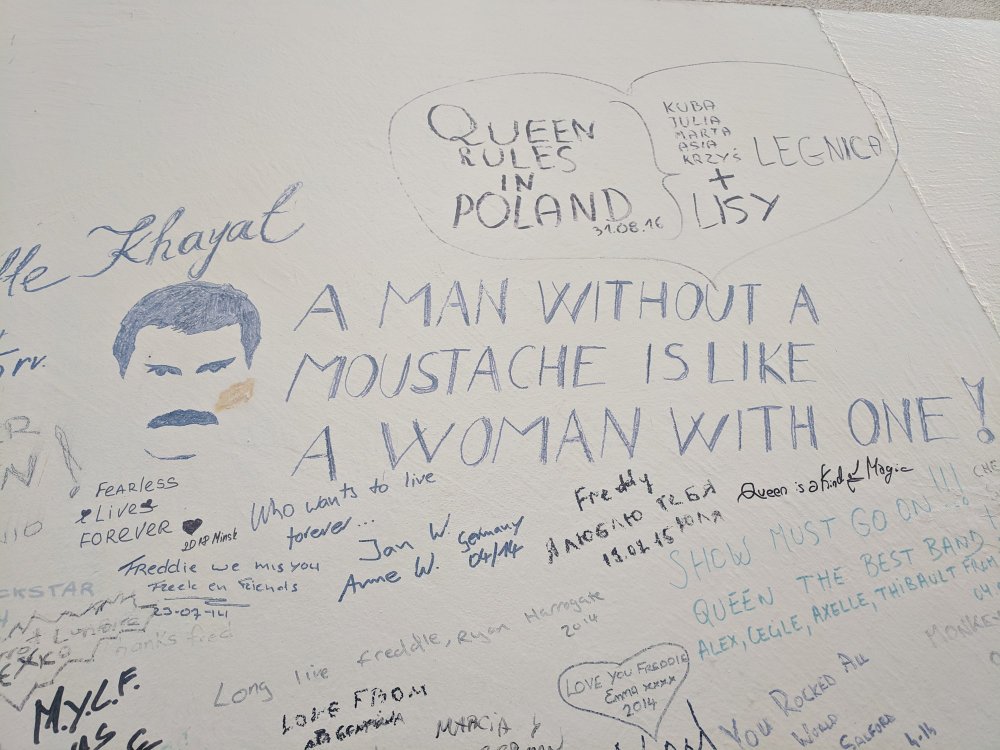 QUEEN
RULES
IN
POLAND
31.08.16
KUBA
JULIA
MARTA
ASIA
KRZYŚ
LEGNICA
+
LISY
Khayat
A MAN WITHOUT A
MOUSTACHE IS LIKE
A WOMAN WITH ONE!
FEARLESS
Lives
FOREVER
2018 Minsk
Who wants to live
forever...
Jan W.
Anne W.
Germany
04/14
Freddy
Я ЛЮБЛЮ ТЕБЯ
19.07.15 Юля
Queen is a Kind of Magic
SHOW MUST GO ON...!!!
QUEEN THE BEST BAND
ALEX, CECILE, AXELLE, THIBAULT FROM
Freddie we mis you
Freek en friends
23-07-14
Long live freddie, Ryan Harrogate
2014
LOVE FROM
ARGENTINA
LOVE YOU FREDDIE
Emma xxxx
2014
YOU ROCKED ALL
WORLD
SALFORD
M.Y.L.F.